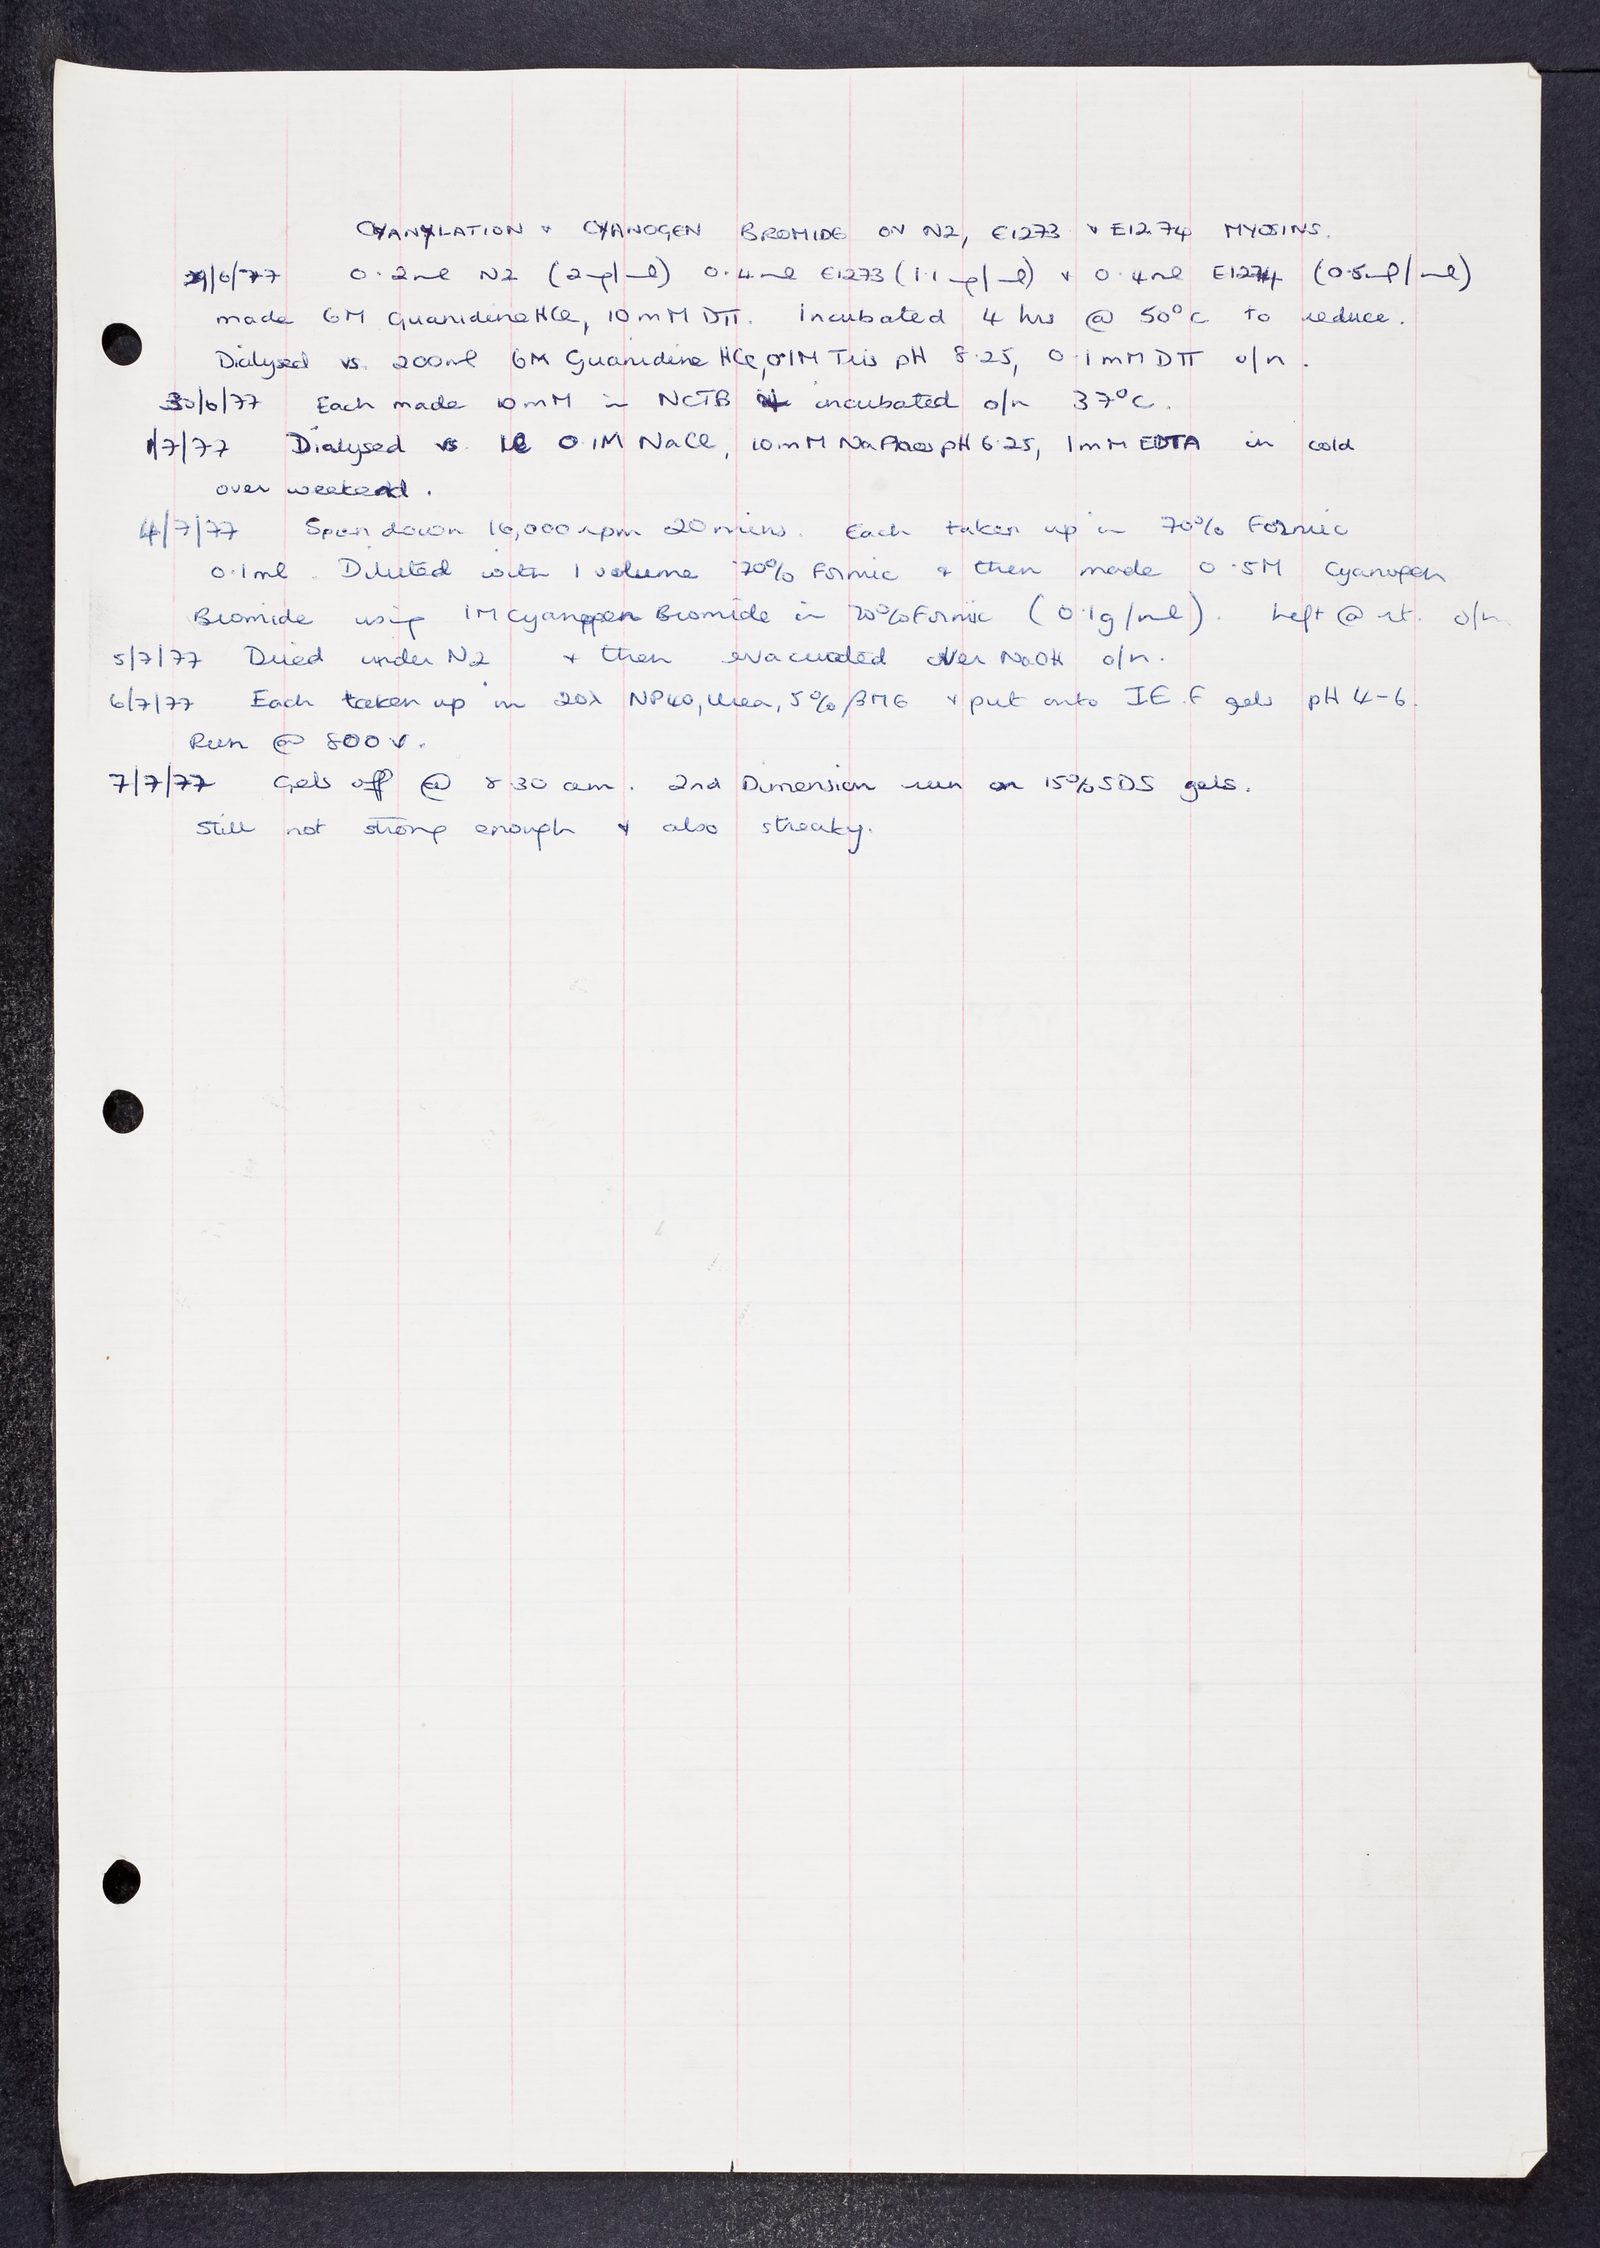 CYANYLATION & CYANOGEN BROMIDE ON N2, E1273 & E1274 MYOSINS.
29/6/77 0.2ml N2 (2mg/ml) 0.4ml E1273 (1.1mg/ml) & 0.4ml E1274 (0.5mg/ml)
made 6M Guanidine HCl, 10mM DTT. Incubated 4 hrs @ 50°C to reduce.
Dialysed vs. 200ml 6M Guanidine HCl, 0.1M Tris pH 8.25, 0.1mM DTT o/n.
30/6/77 Each made 10mM in NCTB incubated o/n 37°C.
1/7/77 Dialysed vs 1l 0.1M NaCl, 10mM NaPhos pH 6.25, 1mM EDTA in cold
over weekend.
4/7/77 Spun down 16,000rpm 20mins. Each taken up in 70% Formic
0.1ml. Diluted with 1 volume 70% Formic & then made 0.5M Cyanogen
Bromide using 1M Cyanogen Bromide in 70% Formic (0.1g/ml). Left @ rt. o/n
5/7/77 Dried under N2 & then evacuated over NaOH o/n.
6/7/77 Each taken up in 20λ NP40, Urea, 5% βME & put onto I.E.F gels pH 4-6.
Run @ 800v.
7/7/77 Gels off @ 8.30 am. 2nd Dimension run on 15% SDS gels.
Still not strong enough & also streaky.